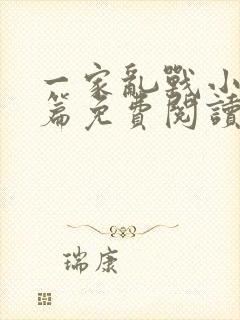 一家亂戰小
篇免費閱讀
瑞康